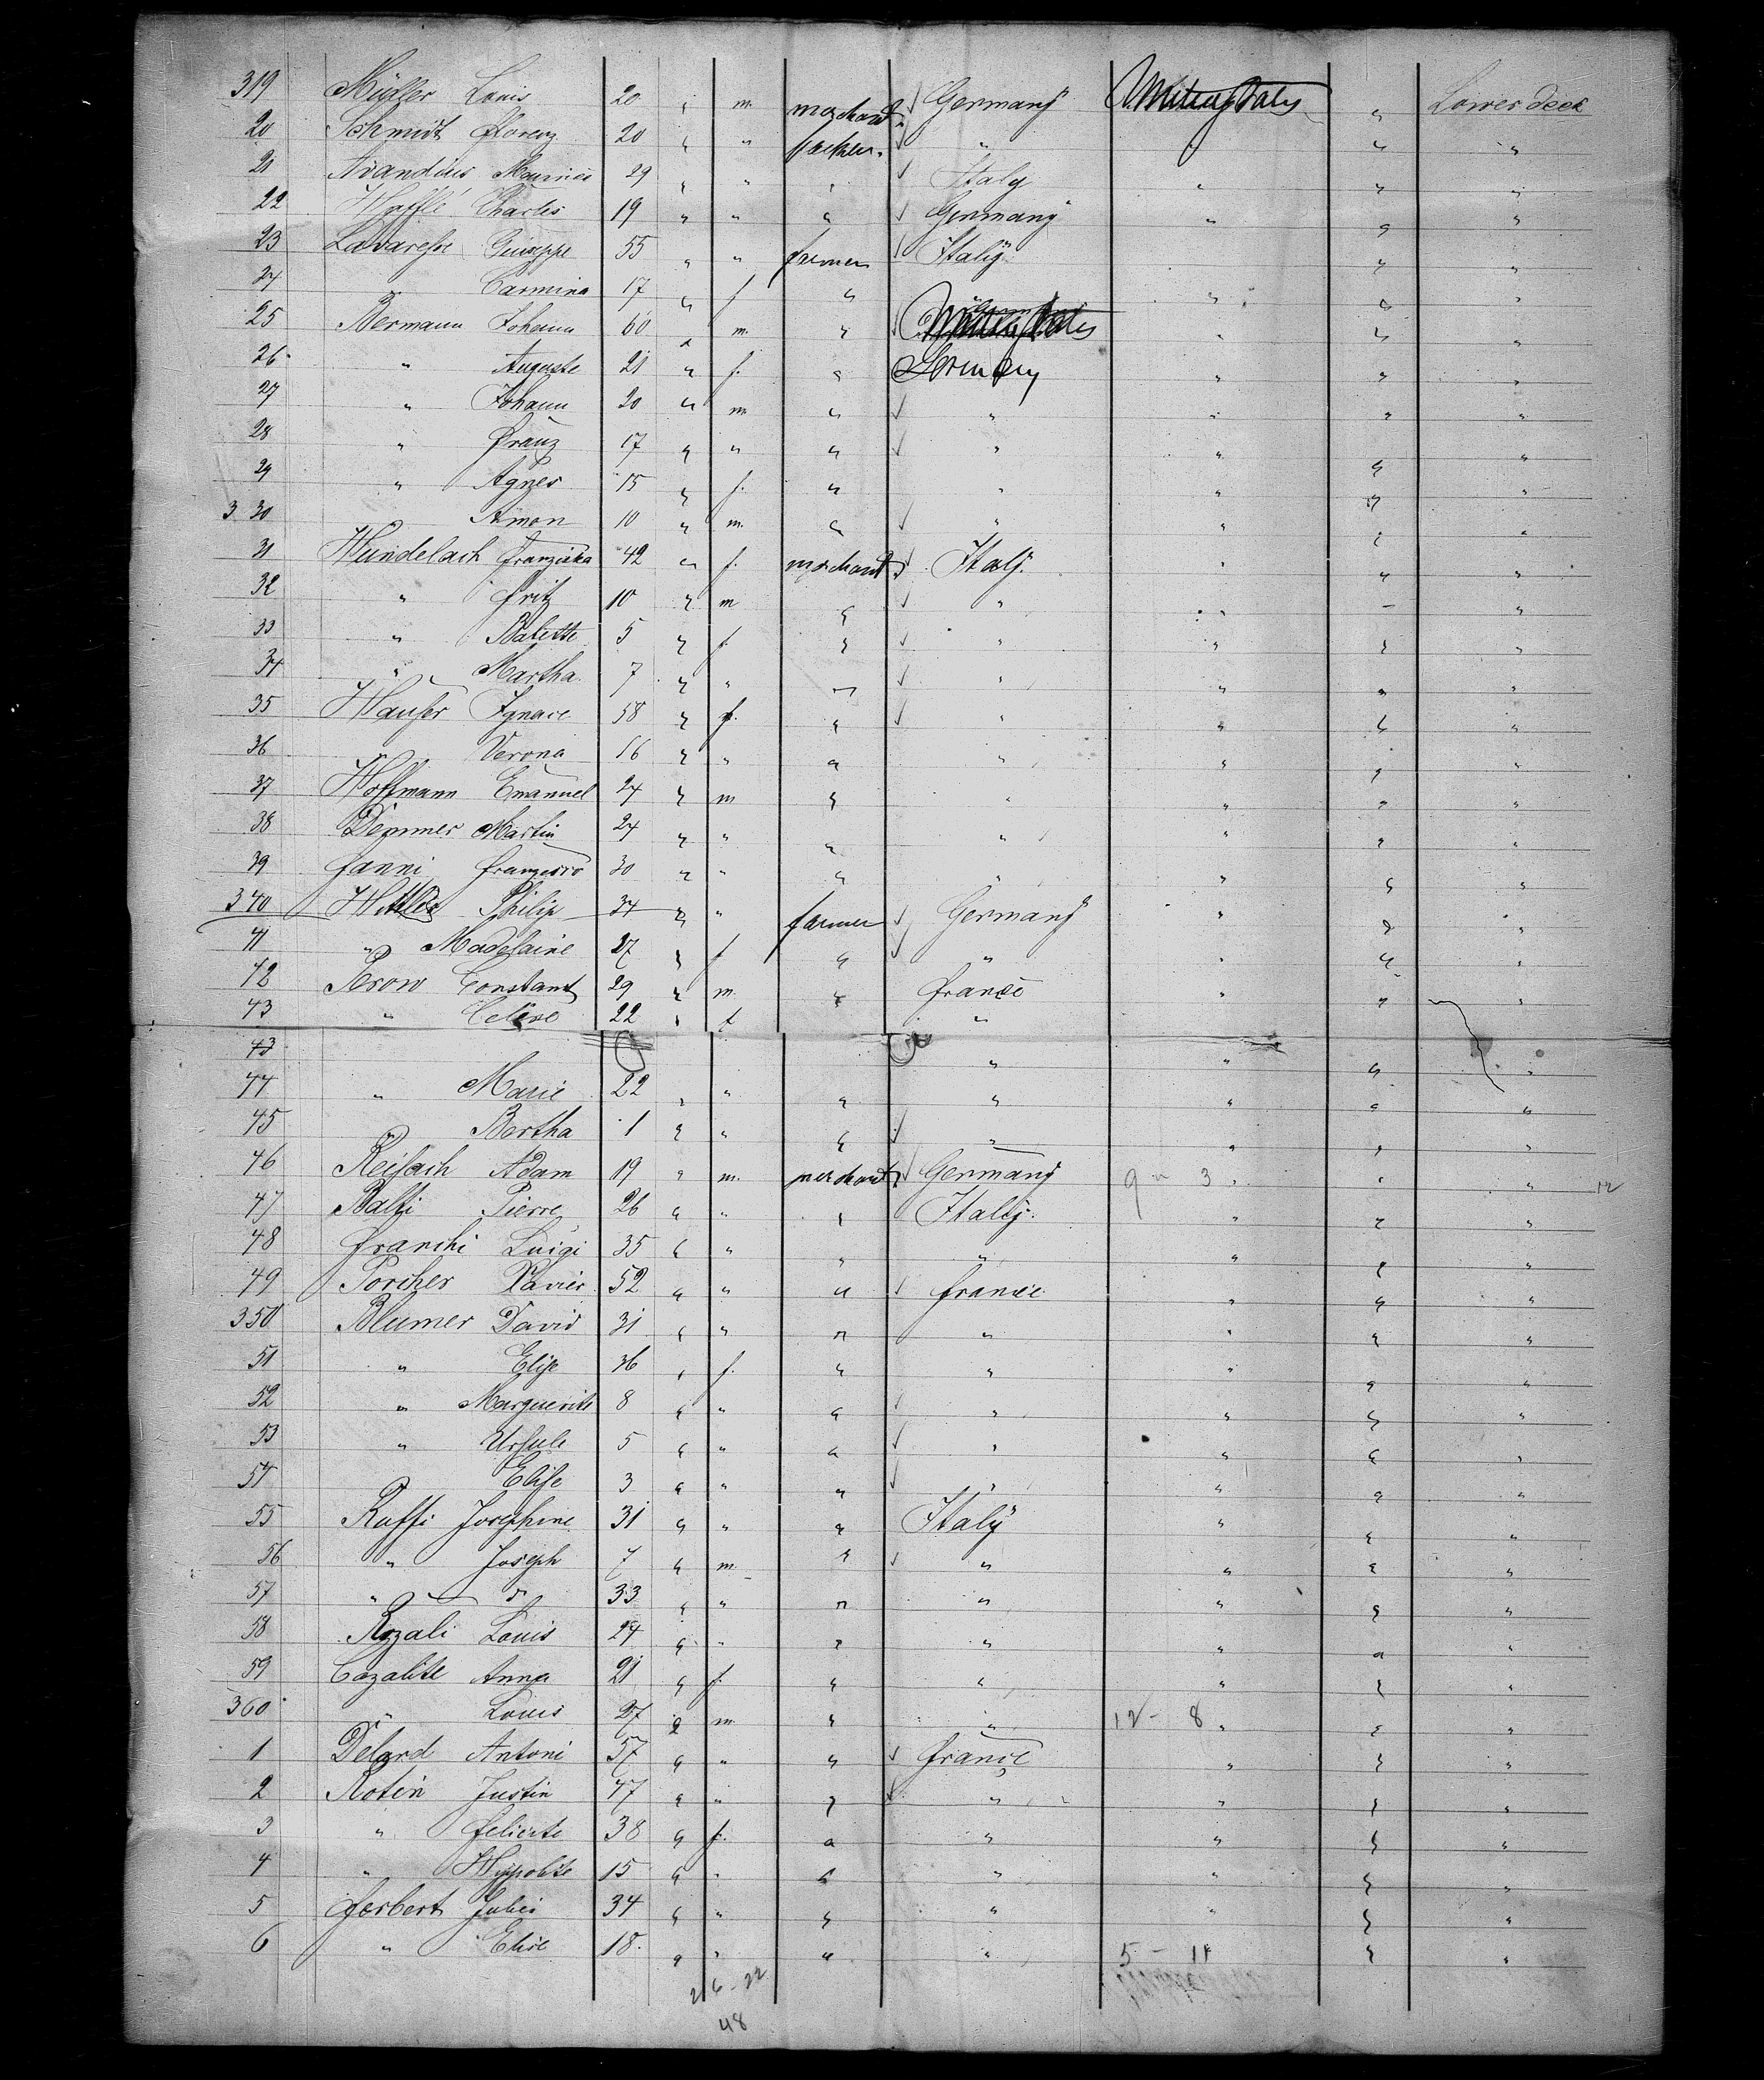 319 Müller Louis 20 " m. merchand Germany United States " Lower deck
20 Schmidt Florenz 20 " " " " " "
21 29 " " " Italy " " "
22 Charles 19 " " " Germany " " "
23 Giuseppe 55 " " farmer Italy " "
24 " Carmina 17 " f " " " "
25 Bermann Johann 60 " m. " " " "
26 " Auguste 21 " f. " Germany " " "
27 " Johann 20 " m. " " " " "
28 " Franz 17 " " " " " " "
29 " Agnes 15 " f. " " " " "
330 Simon 10 " m. " " " " "
31 Hundelach Franziska 42 " f. merchant Italy " " "
32 " Fritz 10 " m " " " " "
33 " Babette 5 " f. " " " " "
34 " Martha 7 " " " " " " "
35 Hauser Ignace 58 " f. " " " " "
36 Verona 16 " " " " " " "
37 Hoffmann Emanuel 24 " m " " " " "
38 Demmer Martin 24 " " " " " " "
39 Janni 30 " " " " " " "
340 Philip 34 " " farmer Germany " " "
41 " Madelaine 27 " f " " " " "
42 Perow Constant 29 " m. " France " " "
43 " 22 " f " "
43 " " " "
44 " Marie 22 " " " " " " "
45 " Bertha 1 " " " " " " "
46 Reisach Adam 19 " m. merchant Germany 9 - 3 " " " 12
47 Balfi Pierre 26 " " " Italy " " "
48 Franchi Luigi 35 " " " " " " "
49 Porcher Xavier 52 " " " France " " "
350 Blumer David 31 " " " " " " "
51 " Elise 36 " f. " " " " "
52 " Marguerite 8 " " " " " " "
53 " Ursule 5 " " " " " " "
54 Elise 3 " " " " " " "
55 Ruffi Josephine 31 " " " Italy " " "
56 " Joseph 7 " m. " " " " "
57 " " 33 " " " " " " "
58 Rozali Louis 24 " " " " " " "
59 Cazalite Anna 21 " f. " " " " "
360 " Louis 27 " m. " " 12 - 8 " " "
1 Delard Antoni 57 " " " France " " "
2 Rotin Justin 47 " " " " " " "
3 " 38 " f. " " " " "
4 " Hippolite 15 " " " " " " "
5 Herbert 34 " " " " " " "
6 " Elise 18. " " " " 5 - 11 " "
26 - 22
48